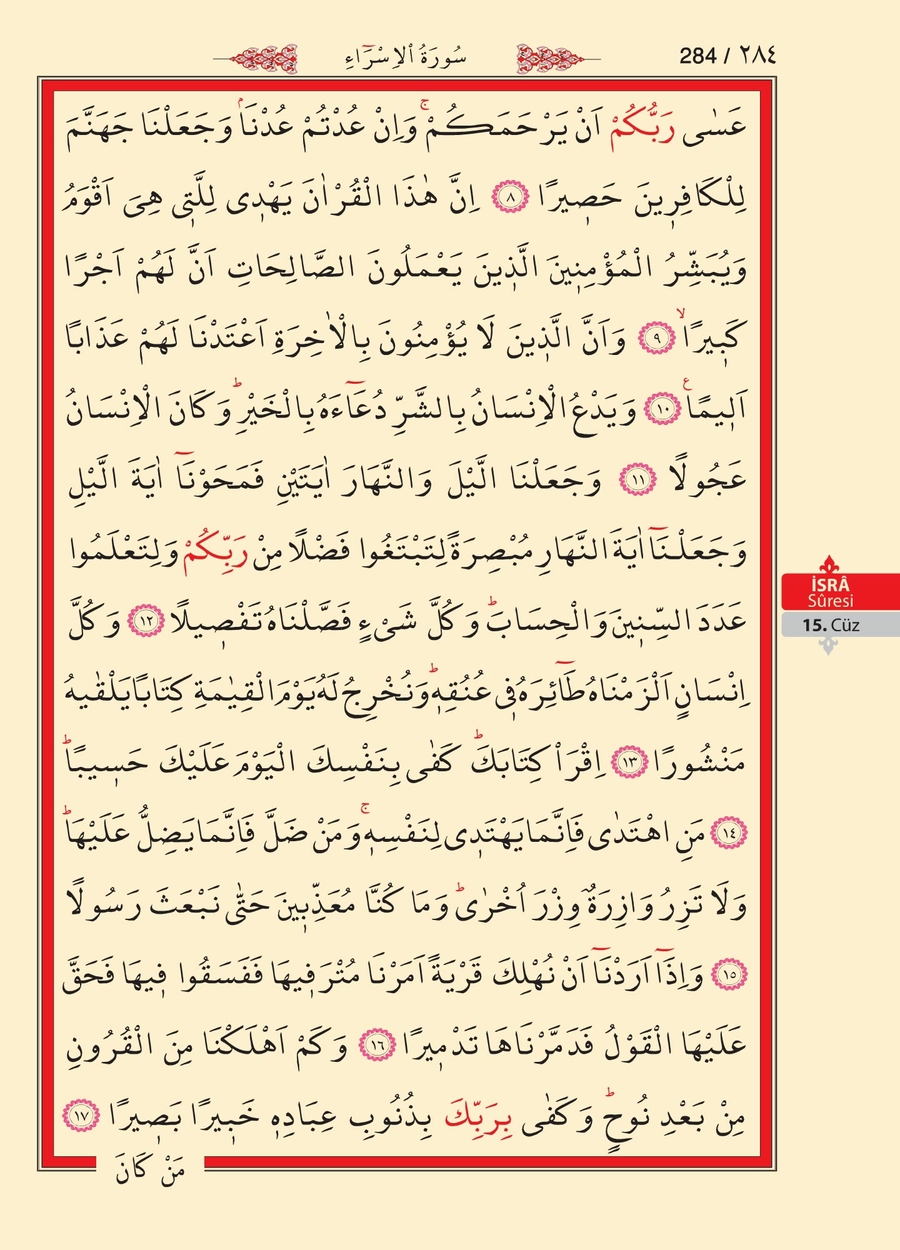 سُورَةُ الْاِسْرَٓاءِ
284 / ٢٨٤
عَسٰى رَبُّكُمْ اَنْ يَرْحَمَكُمْۚ وَاِنْ عُدْتُمْ عُدْنَاۢ وَجَعَلْنَا جَهَنَّمَ
لِلْكَافِر۪ينَ حَص۪يرًا ﴿٨﴾ اِنَّ هٰذَا الْقُرْاٰنَ يَهْد۪ى لِلَّت۪ى هِىَ اَقْوَمُ
وَيُبَشِّرُ الْمُؤْمِن۪ينَ الَّذ۪ينَ يَعْمَلُونَ الصَّالِحَاتِ اَنَّ لَهُمْ اَجْرًا
كَب۪يرًاۙ ﴿٩﴾ وَاَنَّ الَّذ۪ينَ لَا يُؤْمِنُونَ بِالْاٰخِرَةِ اَعْتَدْنَا لَهُمْ عَذَابًا
اَل۪يمًاࣖ ﴿١٠﴾ وَيَدْعُ الْاِنْسَانُ بِالشَّرِّ دُعَٓاءَهُ بِالْخَيْرِۜ وَكَانَ الْاِنْسَانُ
عَجُولًا ﴿١١﴾ وَجَعَلْنَا الَّيْلَ وَالنَّهَارَ اٰيَتَيْنِ فَمَحَوْنَٓا اٰيَةَ الَّيْلِ
وَجَعَلْنَٓا اٰيَةَ النَّهَارِ مُبْصِرَةً لِتَبْتَغُوا فَضْلًا مِنْ رَبِّكُمْ وَلِتَعْلَمُوا
عَدَدَ السِّن۪ينَ وَالْحِسَابَۜ وَكُلَّ شَىْءٍ فَصَّلْنَاهُ تَفْص۪يلًا ﴿١٢﴾ وَكُلَّ
اِنْسَانٍ اَلْزَمْنَاهُ طَٓائِرَهُ ف۪ى عُنُقِه۪ۜ وَنُخْرِجُ لَهُ يَوْمَ الْقِيٰمَةِ كِتَابًا يَلْقٰيهُ
مَنْشُورًا ﴿١٣﴾ اِقْرَأْ كِتَابَكَۜ كَفٰى بِنَفْسِكَ الْيَوْمَ عَلَيْكَ حَس۪يبًاۜ
﴿١٤﴾ مَنِ اهْتَدٰى فَاِنَّمَا يَهْتَد۪ى لِنَفْسِه۪ۚ وَمَنْ ضَلَّ فَاِنَّمَا يَضِلُّ عَلَيْهَاۜ
وَلَا تَزِرُ وَازِرَةٌ وِزْرَ اُخْرٰىۜ وَمَا كُنَّا مُعَذِّب۪ينَ حَتّٰى نَبْعَثَ رَسُولًا
﴿١٥﴾ وَاِذَٓا اَرَدْنَٓا اَنْ نُهْلِكَ قَرْيَةً اَمَرْنَا مُتْرَف۪يهَا فَفَسَقُوا ف۪يهَا فَحَقَّ
عَلَيْهَا الْقَوْلُ فَدَمَّرْنَاهَا تَدْم۪يرًا ﴿١٦﴾ وَكَمْ اَهْلَكْنَا مِنَ الْقُرُونِ
مِنْ بَعْدِ نُوحٍۜ وَكَفٰى بِرَبِّكَ بِذُنُوبِ عِبَادِه۪ خَب۪يرًا بَص۪يرًا ﴿١٧﴾
مَنْ كَانَ
İSRÂ
Sûresi
15. Cüz